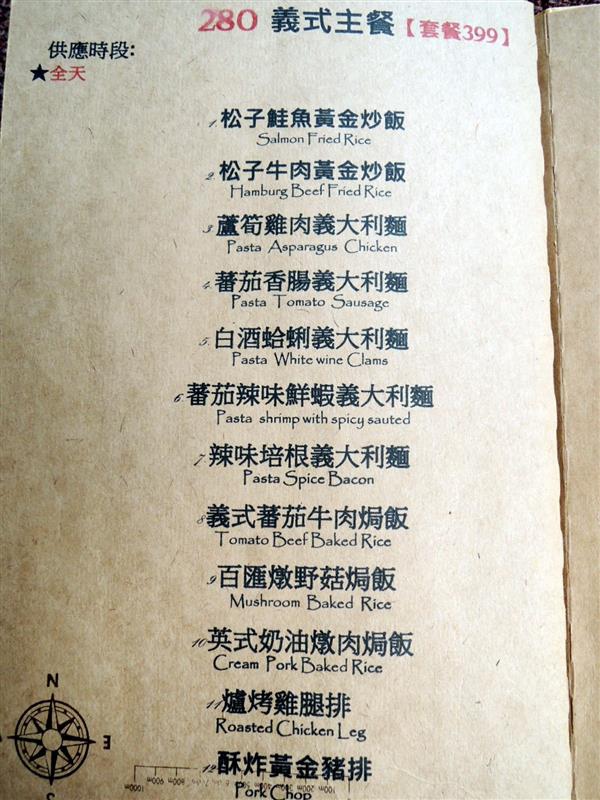 280 義式主餐【套餐399】
供應時段:
★全天
1. 松子鮭魚黃金炒飯
Salmon Fried Rice
2. 松子牛肉黃金炒飯
Hamburg Beef Fried Rice
3. 蘆筍雞肉義大利麵
Pasta Asparagus Chicken
4. 蕃茄香腸義大利麵
Pasta Tomato Sausage
5. 白酒蛤蜊義大利麵
Pasta White wine Clams
6. 蕃茄辣味鮮蝦義大利麵
Pasta shrimp with spicy sauted
7. 辣味培根義大利麵
Pasta Spice Bacon
8. 義式蕃茄牛肉焗飯
Tomato Beef Baked Rice
9. 百匯燉野菇焗飯
Mushroom Baked Rice
10. 英式奶油燉肉焗飯
Cream Pork Baked Rice
11. 爐烤雞腿排
Roasted Chicken Leg
12. 酥炸黃金豬排
Pork Chop
N
E
S